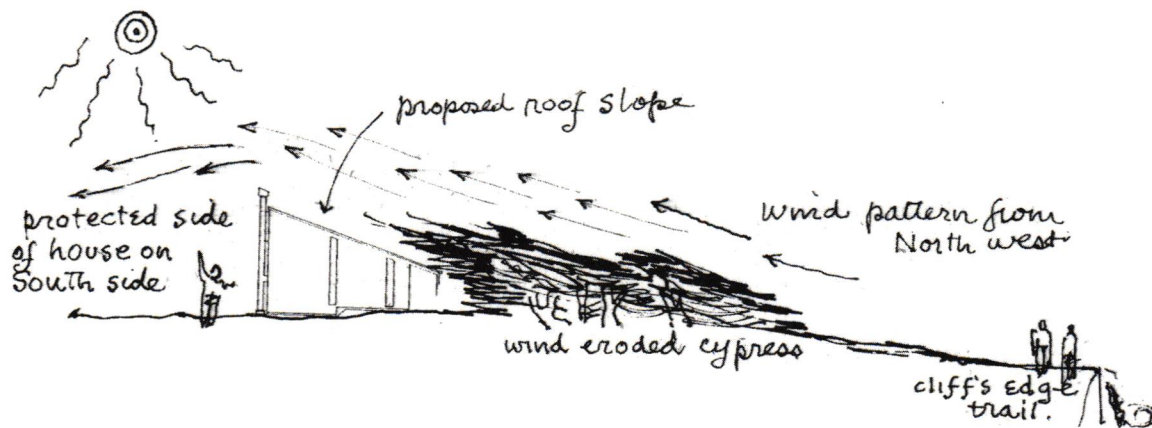 proposed roof slope
protected side
of house on
South side
wind pattern from
North west
wind eroded cypress
cliff's edge
trail.